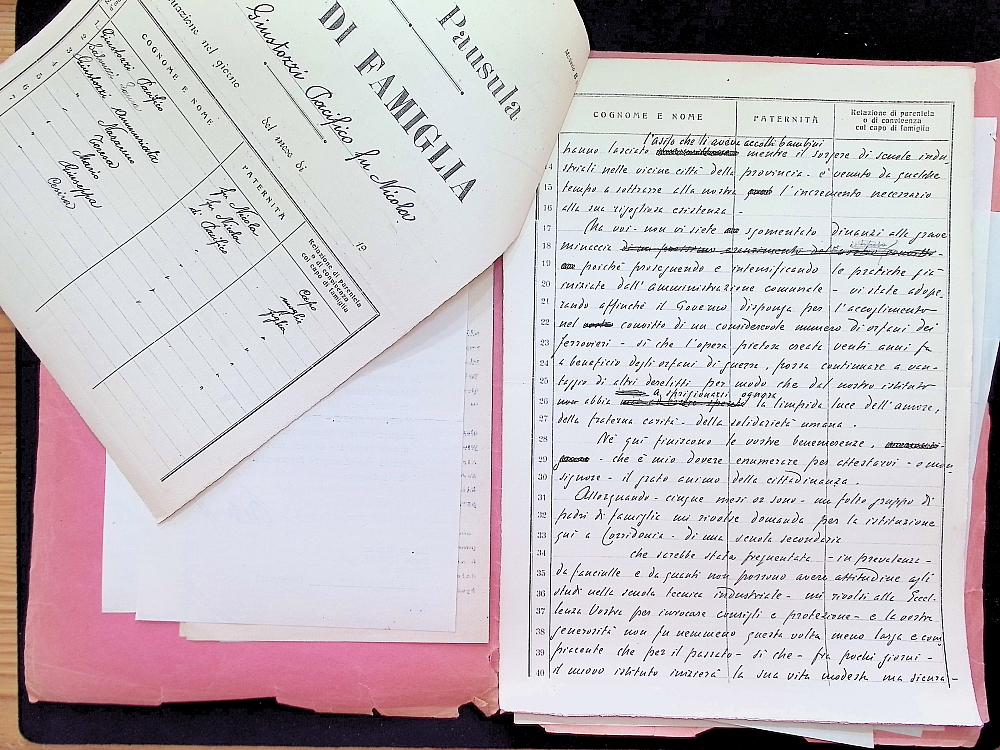 Pausula
DI FAMIGLIA
Giustozzi Pacifico fu Nicola
del mese di
19
COGNOME E NOME
PATERNITÀ
Relazione di parentela
o di convivenza
col capo di famiglia
1 Giustozzi Pacifico fu Nicola Capo
2 fu Nicola moglie
3 Giustozzi Annunziata di Pacifico figlia
4 Nazzareno " "
5 Teresa " "
6 Maria " "
7 Giuseppa " "
Cesira " "
COGNOME E NOME
PATERNITÀ
Relazione di parentela
o di convivenza
col capo di famiglia
l'asilo che li aveva accolti bambini
hanno lasciato mentre il sorgere di scuole indu
14 striali nelle vicine città della provincia - è venuto da qualche
15 tempo a sottrarre alla nostra l'incremento necessario
16 alla sua rigogliosa esistenza -
17 Ma voi - non vi siete sgomentato dinanzi alla grave
18 minaccia
19 poichè proseguendo e intensificando le pratiche già
20 iniziate dall'amministrazione comunale - vi state adope
21 rando affinchè il Governo disponga per l'accoglimento
22 nel convitto di un considerevole numero di orfani dei
23 ferrovieri - sì che l'opera pietosa creata venti anni fa
24 a beneficio degli orfani di guerra, possa continuare a van-
25 taggio di altri derelitti per modo che dal nostro istituto
a sprigionarsi ognora
26 abbia la limpida luce dell'amore,
27 della fraterna carità - della solidarietà umana.
28 Nè qui finiscono le vostre benemerenze,
29 - che è mio dovere enumerare per attestarvi - o mon
30 signore - il grato animo della cittadinanza.
31 Allorquando - cinque mesi or sono - un folto gruppo di
32 padri di famiglia mi rivolse domanda per la istituzione
33 qui a Corridonia - di una scuola secondaria
34 che sarebbe stata frequentata - in prevalenza -
35 da fanciulle e da quanti non possono avere attitudine agli
36 studi nella scuola tecnica industriale - mi rivolsi alla Eccel-
37 lenza Vostra per invocare consigli e protezione - e la vostra
38 generosità non fu nemmeno questa volta meno larga e com
39 piacente che per il passato - sì che - fra pochi giorni -
40 il nuovo istituto inizierà la sua vita modesta ma sicura -